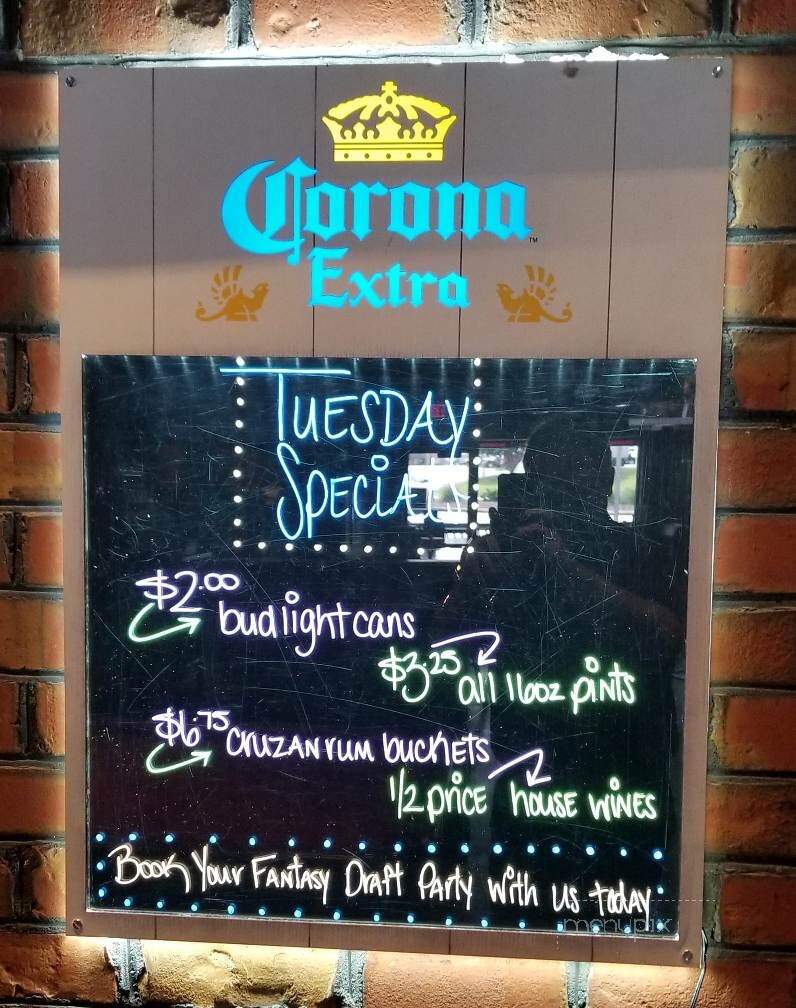 Corona
Extra
TM
TUESDAY
SPECIALS
$2.00
bud light cans
$3.25
all 16oz pints
$6.75 CRUZAN RUM buckets
1/2 price house WINES
Book Your Fantasy Draft Party with us today
menupix